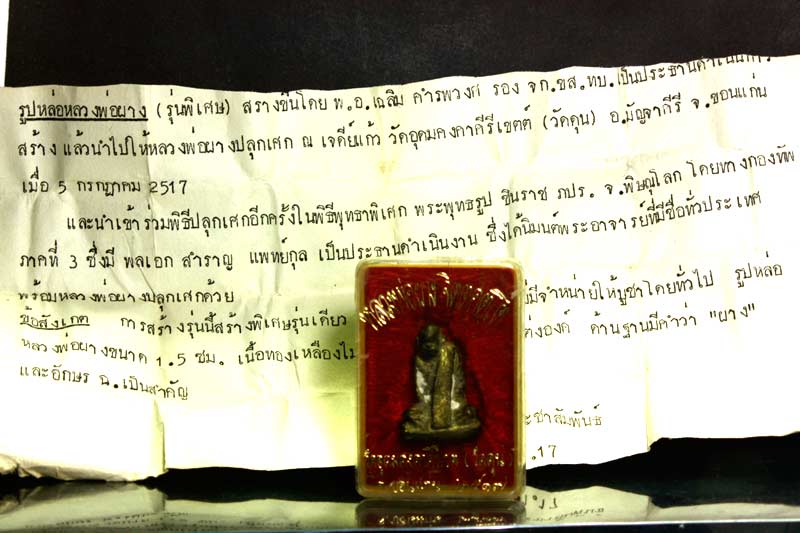 รูปหล่อหลวงพ่อผาง (รุ่นพิเศษ) สร้างขึ้นโดย พ.อ.เฉลิม คำรพวงศ์ รอง จก.ขส.ทบ.เป็นประธานดำเนินการ
สร้าง แล้วนำไปให้หลวงพ่อผางปลุกเศก ณ เจดีย์แก้ว วัดอุดมคงคาคีรีเขตต์ (วัดดูน) อ.มัญจาคีรี จ.ขอนแก่น
เมื่อ 5 กรกฎาคม 2517
และนำเข้าร่วมพิธีปลุกเศกอีกครั้งในพิธีพุทธาพิเศก พระพุทธรูป ชินราช ภปร. จ.พิษณุโลก โดยทางกองทัพ
ภาคที่ 3 ซึ่งมี พลเอก สำราญ แพทย์กุล เป็นประธานดำเนินงาน ซึ่งได้นิมนต์พระอาจารย์ที่มีชื่อทั่วประเทศ
พร้อมหลวงพ่อผางปลุกเศกด้วย
ข้อสังเกต การสร้างรุ่นนี้สร้างพิเศษรุ่นเดียว มีจำหน่ายให้บูชาโดยทั่วไป รูปหล่อ
หลวงพ่อผางขนาด 1.5 ซม. เนื้อทองเหลือง องค์ ด้านฐานมีคำว่า "ผาง"
และอักษร ฉ.เป็นสำคัญ
ประชาสัมพันธ์
.17